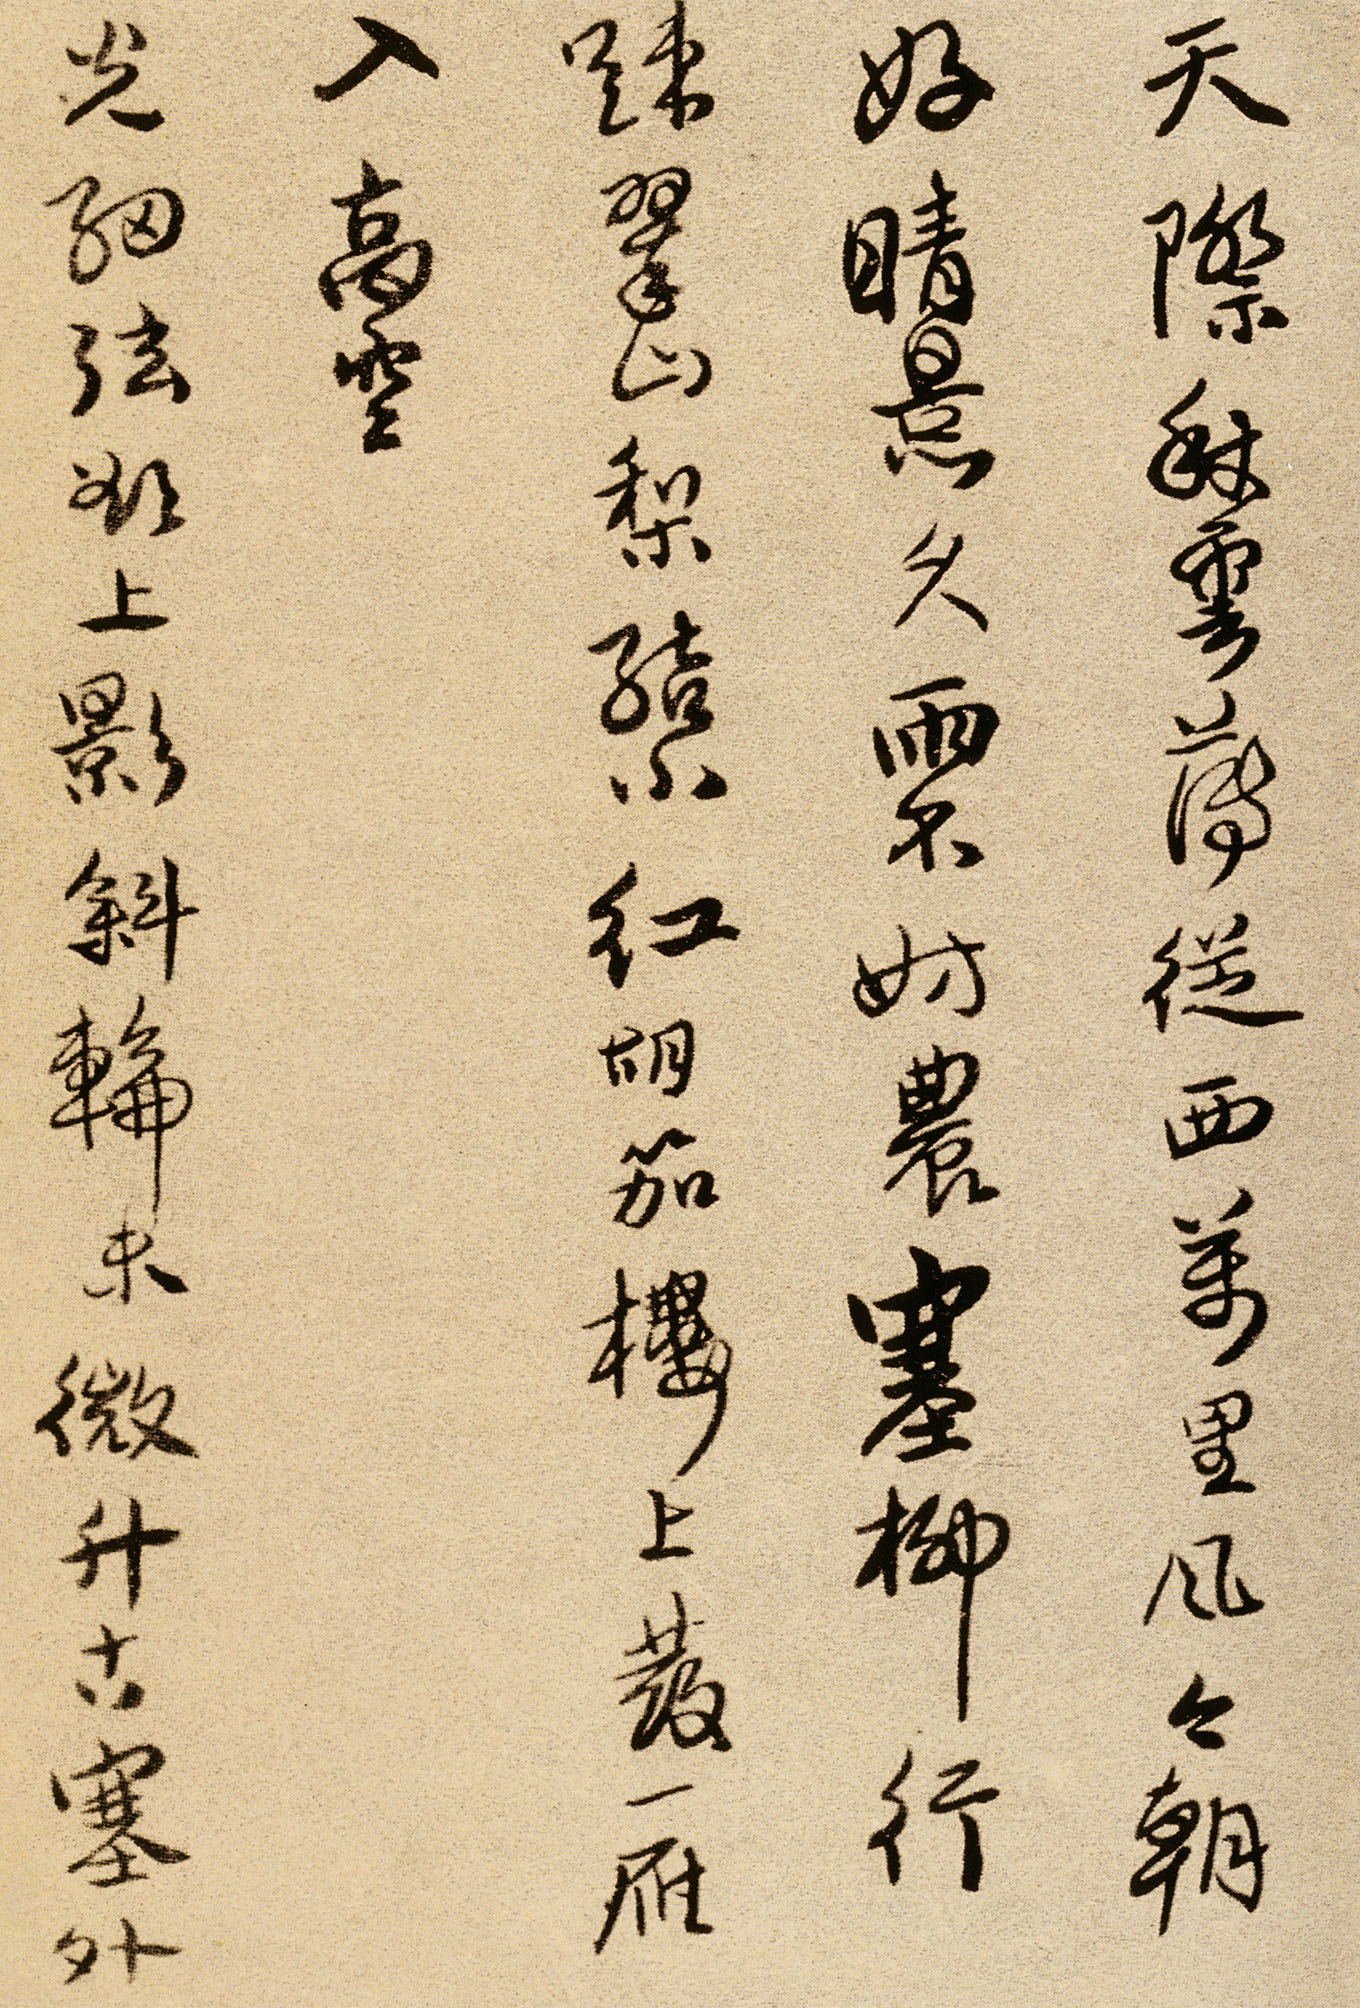 天際秋雲薄從西萬里風今朝
好晴景久雨不妨農塞柳行
踈翠山梨結紅胡笳樓上發一雁
入高空
光細弦欲上影斜輪未微升古塞外